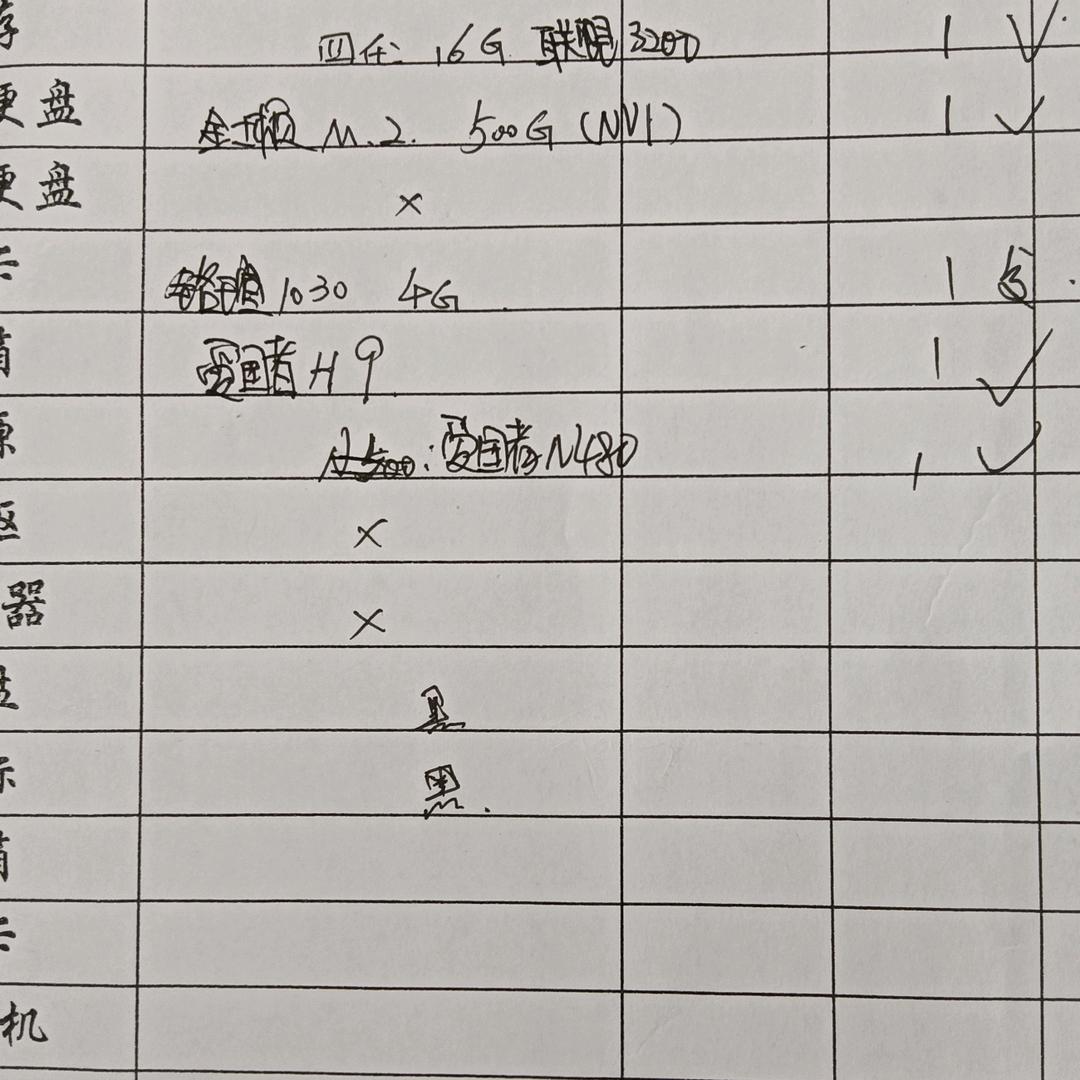 四任: 16G 联想 3200 1 ✓
硬盘 金士顿 M.2. 500G (NV1) 1 ✓
硬盘 ×
卡 铭瑄 1030 4G 1
箱 爱国者 H9 1 ✓
源 : 爱国者 N480 1 ✓
驱 ×
器 ×
盘 黑
标 黑.
箱
卡
机